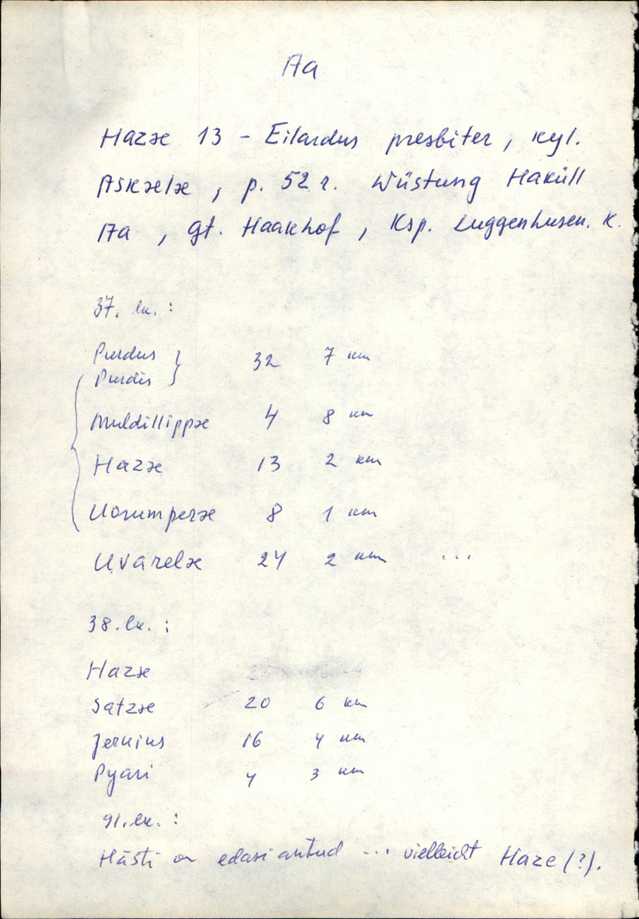 Aa
Hazæ 13 - Eilardus presbiter, kyl.
Askælæ, p. 52 r. Wüstung Haküll
Aa, gt. Haakhof, Ksp. Luggenhusen. K.
37. lk.:
Purdus } 32 7 km
Purdis }
Muldillippæ 4 8 km
Hazæ 13 2 km
Uorumperæ 8 1 km
Uvarelæ 24 2 km ...
38. lk.:
Hazæ
Satzæ 20 6 km
Jeruius 16 4 km
Pyari 4 3 km
91. lk.:
Hästi on edasi antud ... vielleicht Haze (?).